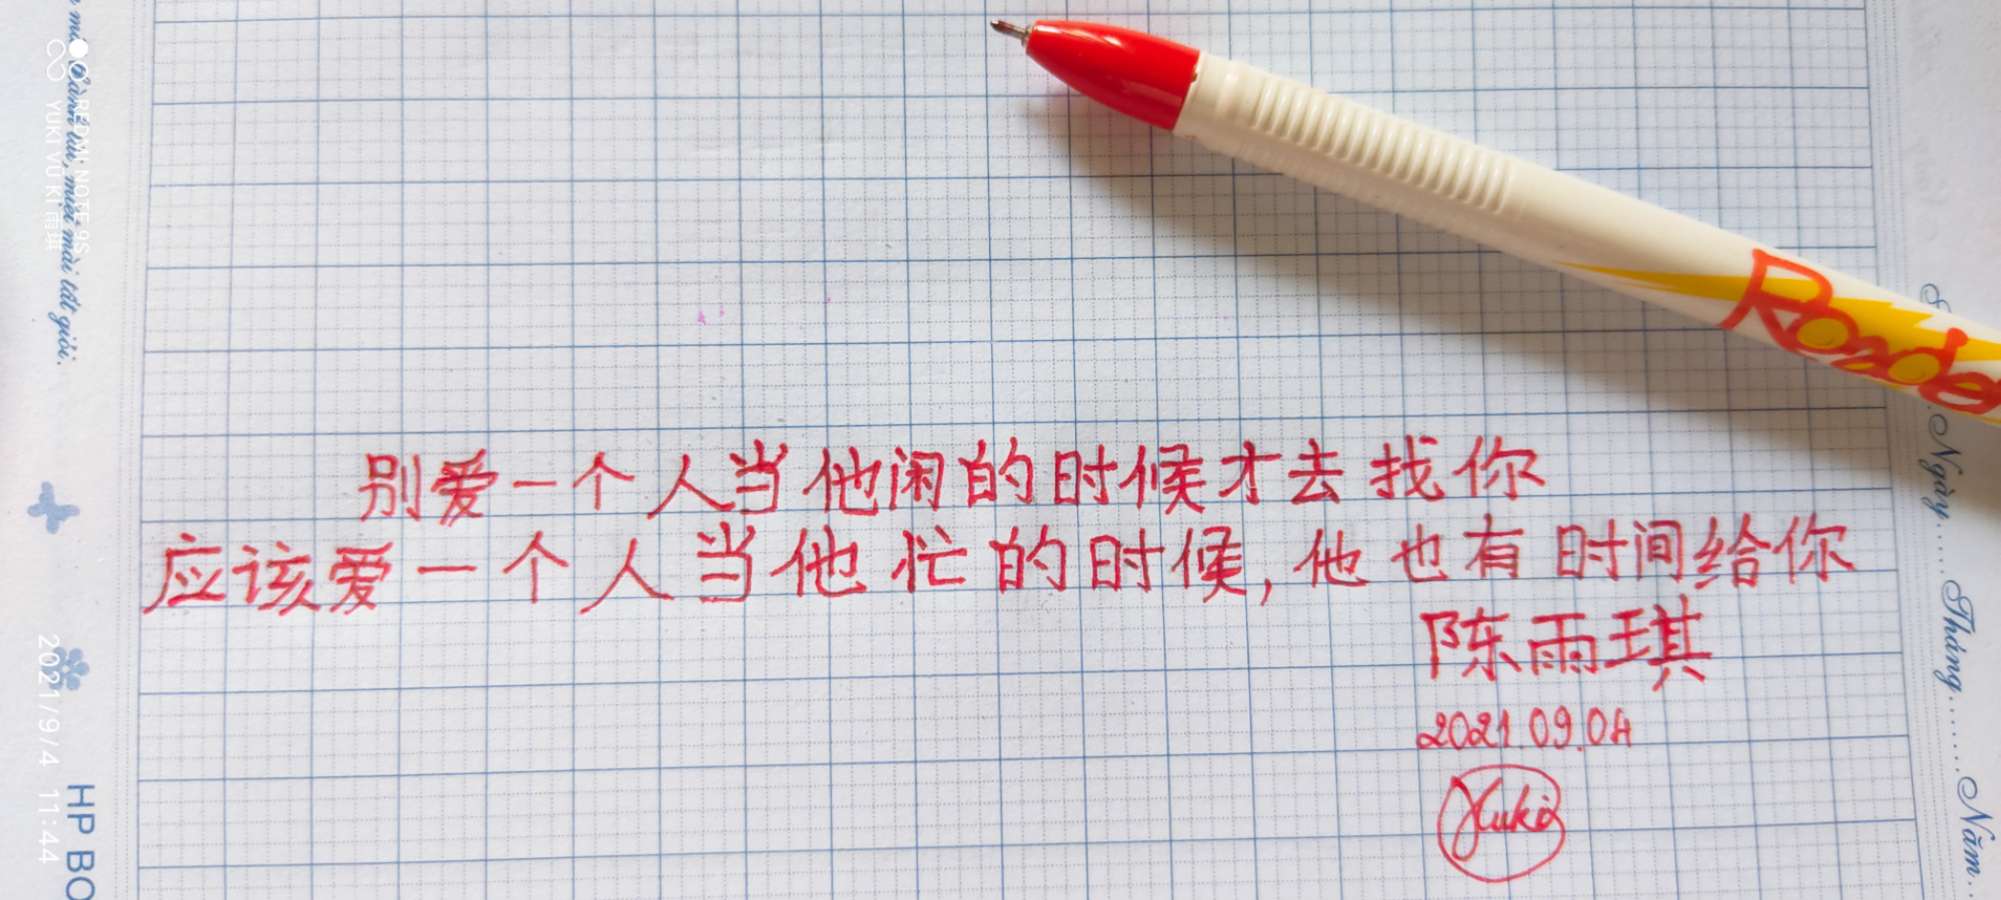 别爱一个人当他闲的时候才去找你
应该爱一个人当他忙的时候，他也有时间给你
陈雨琪
2021.09.04
Yuki
Roade
REDMI NOTE 9S
YUKI VU KI 雨琪
2021/9/4 11:44
miệt mài tất giỏi.
HP BO
Ngày......Tháng.......Năm...